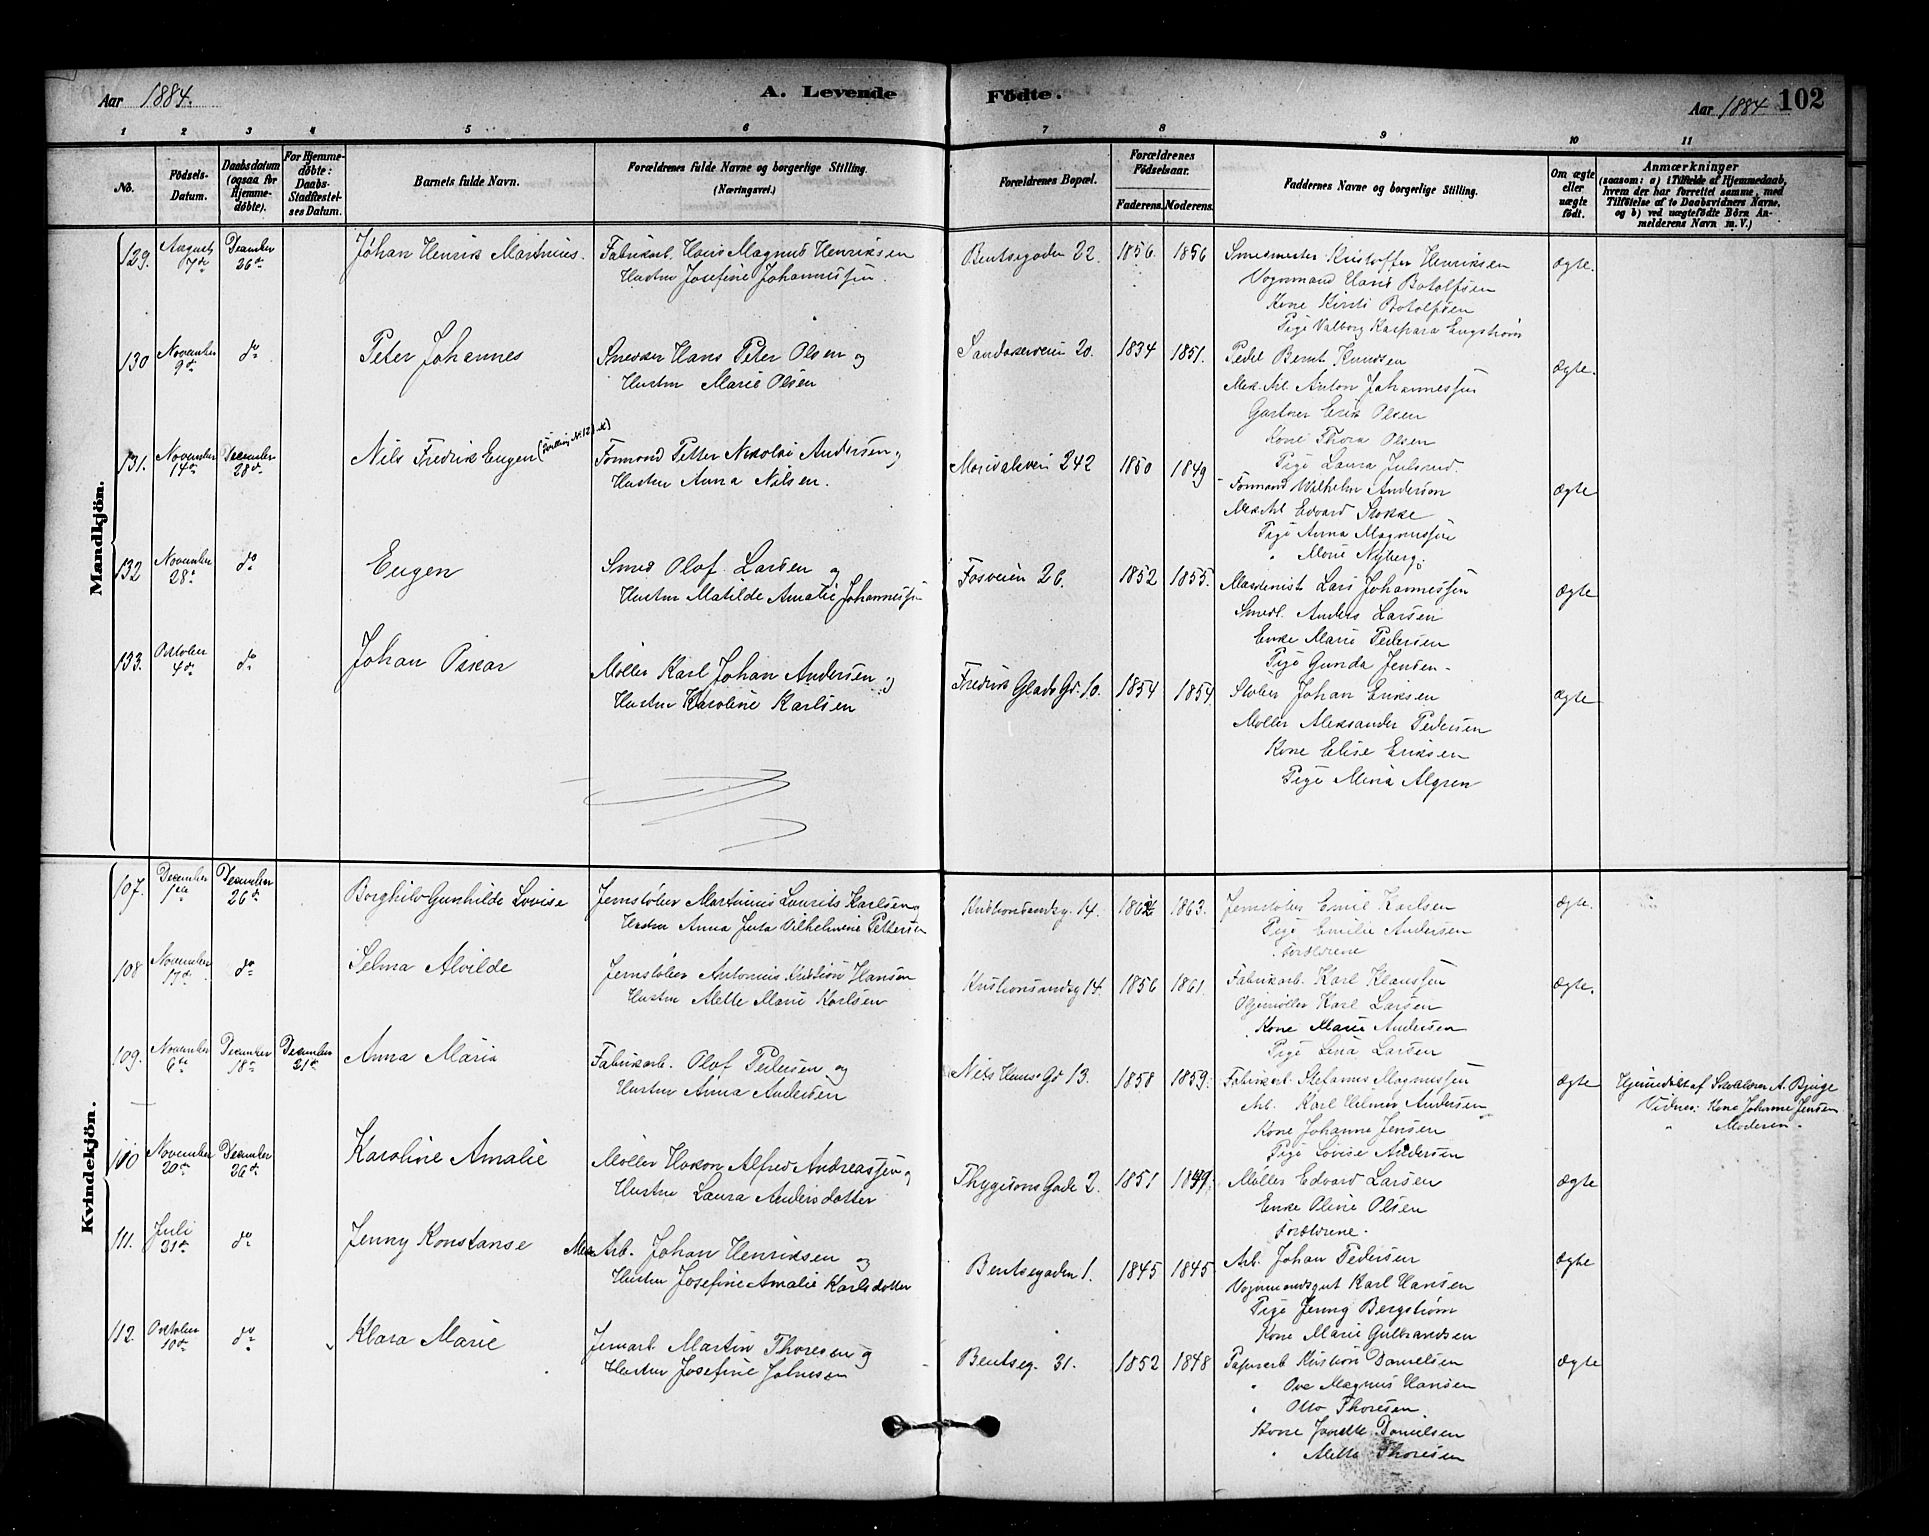 Aar 1884.
A. Levende Födte.
Aar 1884 102
1 2 3 4 5 6 7 8 9 10 11
No.
Födsels-Datum.
Daabsdatum (ogsaa for Hjemme-döbte).
For Hjemme-döbte: Daabs-Stadfæstel-ses Datum.
Barnets fulde Navn.
Forældrenes fulde Navne og borgerlige Stilling. (Næringsvei.)
Forældrenes Bopæl.
Forældrenes Födselsaar.
Faderens. Moderens.
Faddernes Navne og borgerlige Stilling.
Om ægte eller uægte födt.
Anmærkninger
(saasom: a) i Tilfælde af Hjemmedaab,
hvem der har forrettet samme, med
Tilföielse af to Daabsvidners Navne,
og b) ved uægtefödte Börn An-
melderens Navn m. V.)
Mandkjön.
129. August 7de December 26de Johan Henrik Martinius. Fabrikarb. Hans Magnus Henriksen Bentsegaden 22. 1856 1856 Smedmester Kristoffer Henriksen ægte.
Hustru Josefine Johannessen.
Vognmand Hans Botolfsen
Kone Kirsti Botolfsen
Pige Valborg Kaspara Engstrøm
130 November 9de do Peter Johannes Snedker Hans Peter Olsen og Sandakerveien 20. 1834 1851. Pedel Bernt Knudsen ægte.
Hustru Marie Olsen
Mek. Arb. Anton Johannessen
Gartner Erik Olsen
Kone Thora Olsen
Pige Laura Julsrud.
131. November 14de December 28de Nils Fredrik Eugen (Tvilling Formand Petter Nikolai Andersen og Maridalsveien 242 1850 1849 Formand Wilhelm Anderson ægte
Hustru Anna Nilsen.
Mek. Arb. Edvard Stokke
Pige Anna Magnussen
" Marie Nyberg.
132 November 28de do Eugen Smed Olof Larsen og Fosveien 26. 1852 1855. Maskinist Lars Johannessen ægte
Hustru Matilde Amalie Johannessen
Smedl. Anders Larsen
Enke Marie Pedersen
Pige Gunda Jensen.
133. Oktober 4de do Johan Oskar Møller Karl Johan Andersen og Fredrik Glads Gd. 10. 1854 1854 Støber Johan Eriksen ægte
Hustru Karoline Karlsen
Møller Aleksander Pedersen
Kone Elise Eriksen
Pige Mina Algren
Kvindekjön.
107. December 1ste December 26de Borghild Gunhilde Lovise Jernstøber Martinius Laurits Karlsen og Kristiansandsg. 14. 1862 1863. Jernstøber Emil Karlsen ægte.
Hustru Anna Juta Vilhelmine Pettersen
Pige Emilie Andersen
Forældrene
108 November 17de do Selma Alvilde Jernstøber Antonius Kristian Hansen Kristiansandsg 14. 1856 1861. Fabrikarb. Karl Klaussen ægte.
Hustru Alette Marie Karlsen
Oljemøller Karl Larsen
Kone Marie Andersen
Pige Lina Larsen
109. November 6te December 18de December 21de Anna Maria Fabrikarb. Olof Pedersen og Niels Hens Gd 13. 1858 1859. Fabrikarb Stefanus Magnussen ægte Hjemdøbt af A. Bjerge
Hustru Anna Andersen
Arb. Karl Hilmer Andersen Vidner: Kone Johanne Jensen
Kone Johanne Jensen " Moderen.
Pige Lovise Andersen
110 November 20de December 26de Karoline Amalie Møller Hakon Alfred Andreassen og Thygesons Gade 2. 1851 1849. Møller Edvard Larsen ægte
Hustru Laura Andersdatter
Enke Oline Olsen
Forældrene.
111. Juli 31de do Jenny Konstanse Mek Arb. Johan Henriksen og Bentsegaden 1. 1845 1845 Arb. Johan Pedersen ægte
Hustru Josefine Amalie Karlsdotter
Vognmandsgut Karl Hansen
Pige Jenny Bergstrøm
Kone Marie Gulbrandsen
112. Oktober 10de do Klara Marie Jernarb. Martin Thoresen og Bentseg. 31. 1852 1848 Papirarb Kristian Danielsen ægte
Hustru Josefine Johnsen
" Ove Magnus Hansen
" Otto Thoresen
Kone Janette Danielsen
" Aletta Thoresen